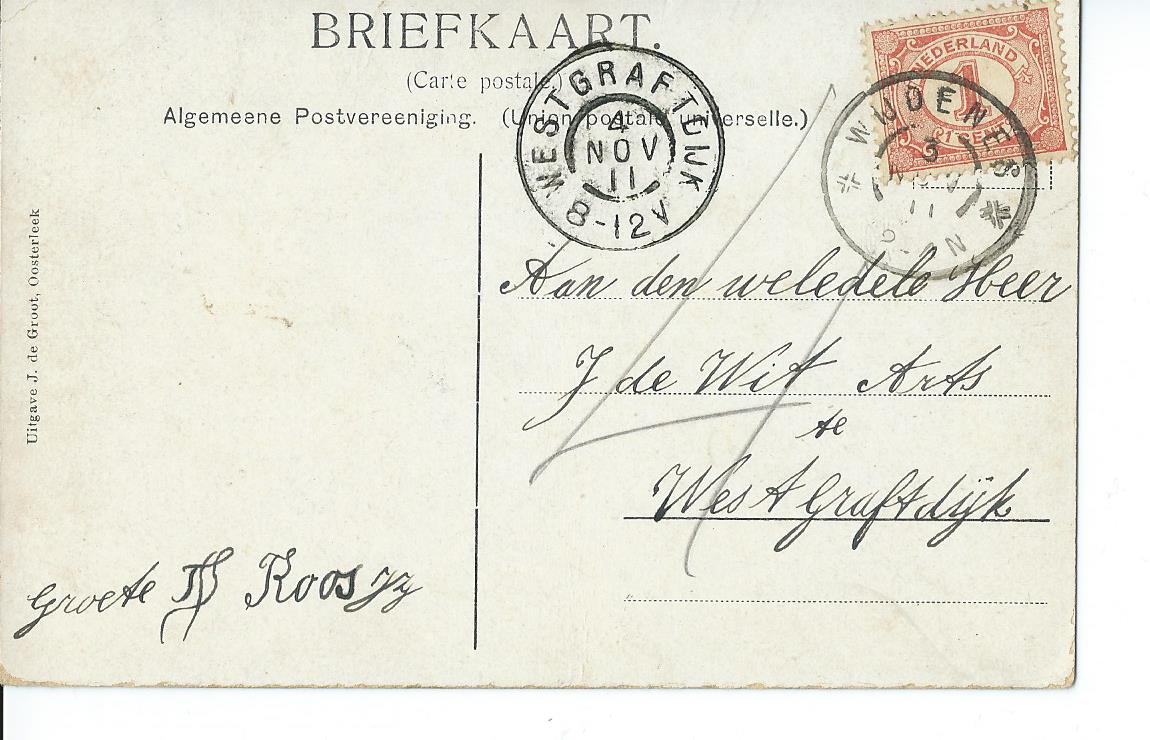 BRIEFKAART.
(Carte postale.)
Algemeene Postvereeniging. (Union postale universelle.)
WESTGRAFTDIJK
4
NOV
11
8-12V
NEDERLAND
1
CENT
WIJDENES
3
NOV
11
N
Uitgave J. de Groot, Oosterleek
Aan den weledele Heer
J de Wit Arts
te
West Graftdijk
Groete Roos Jz